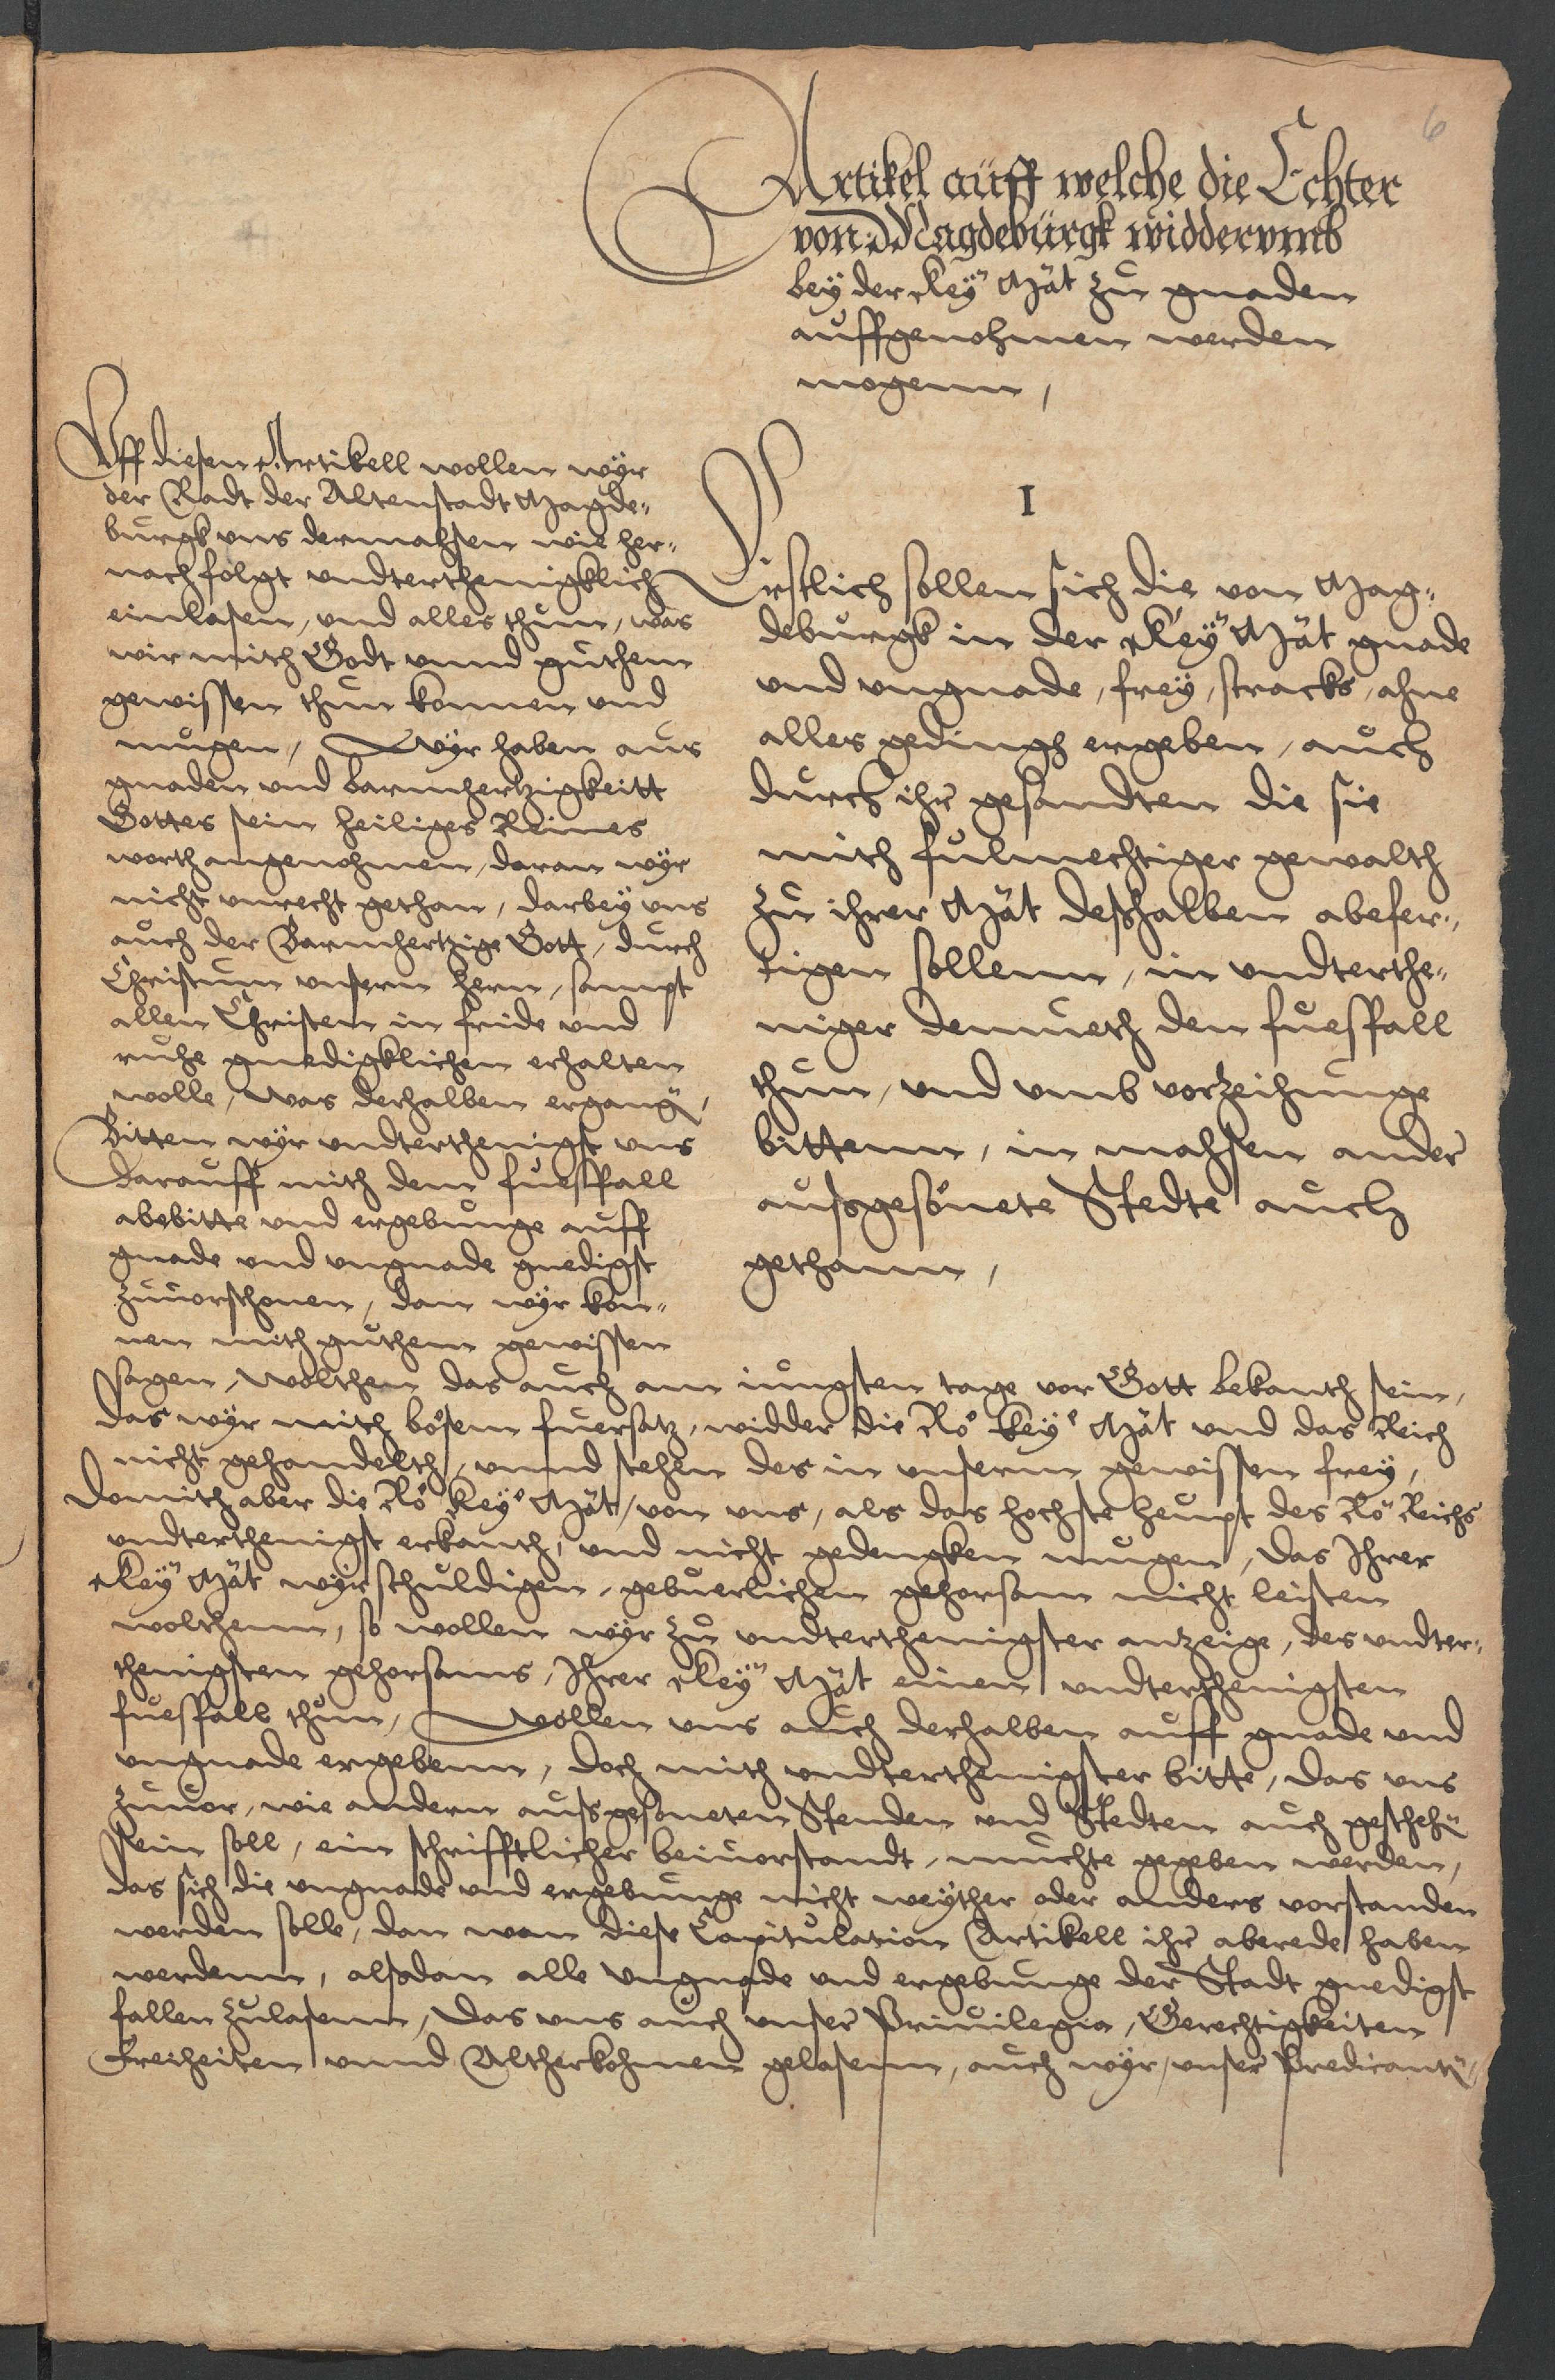 6
Artikel auff welche die Echter
von Magdeburgk widdervmb
bey der Keyn Mat zu gnaden
auffgenohmen werden
mogenn,
I
Erstlich sollen sich die von Mag-
deburgk in der Keyn Mat gnade
vnd vngnade, frey, stracks, ahne
alles gedingh ergeben, auch
durch ihr gesandten die sie
mith fulmechtiger gewalth
zu ihrer Mat deshalben abefer-
tigen sollenn, in vndterthe-
niger demueth den fuesfall
thun, vnd vmb vorzeihunge
bittenn, in mahsen ander
aussgesönete Stedte auch
gethann,
Vff diesen Artikell wollen wyr
der Radt der Altenstadt Magde-
burgk vns dermahsen wie her-
nach folgt vndterthenigklich
einlasen, vnd alles thun, was
wir mith Godt vnnd guthem
gewissen thun konnen vnd
mugen, Wyr haben aus
gnaden vnd barmhertzigkeitt
Gottes sein heiliges Reines
worth angenohmen, daran wyr
nicht vnrecht gethan, darbey vns
auch der Barmhertzige Gott, durch
Christum vnsern hern, sampt
allen Christen in fride vnd
ruhe gnedigklichen erhalten
wolle, was derhalben ergang̃,
Bitten wyr vndterthenigst vns
darauff mith dem fuesfall
abebitte vnd ergebunge auff
gnade vnd vngnade gnedigst
zuuorschonen, dan wyr kon-
nen mith guthem gewissen
sagen, wolthen das auch am iungsten tage vor Gott bekanth sein,
das wyr mith bösem fuersatz, widder die Rö Keye Mat vnd das Reich
nicht gehandelth, vnnd stehen des in vnserm gewissen frey,
Domith aber die Rö Keye Mat, von vns, als das hochste heupt des Rö Reichs
vndterthenigst erkanth, vnd nicht gedengken mugen, das Ihrer
Keyn Mat wyr schuldigen, gebuerlichen gehorsam nicht leisten
wolthenn, so wollen wyr zu vndterthenigster anzeige, des vndter-
thenigsten gehorsams, Ihrer Keyn Mat einen vndterthenigsten
fuesfall thun, Wollen vns auch derhalben auff gnade vnd
vngnade ergebenn, doch mith vndterthenigster bitte, das vns
zuuor, wie andern aussgesoneten Stenden vnd Stedten auch geschehñ
sein soll, ein schrifftlicher beiuorstandt, muchte gegeben werden,
das sich die vngnade vnd ergebunge nicht weyther oder anders vorstanden
werden solle, dan wan diese Capitulation Artikell ihr aberede haben
werdenn, alsodan alle vngnade vnd ergebunge der Stadt gnedigst
fallen zulasenn, Das vns auch vnser Priuilegia, Gerechtigkeiten
Freiheiten vnnd Altherkohmen gelasenn, auch wyr, vnser Predicantñ,